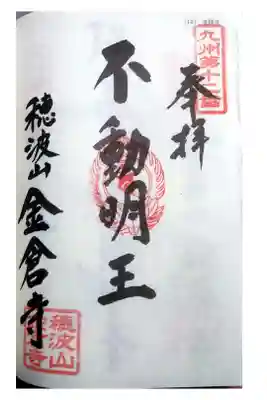 奉拝
九州第十二番
不動明王
穂波山
金倉寺
穂波山